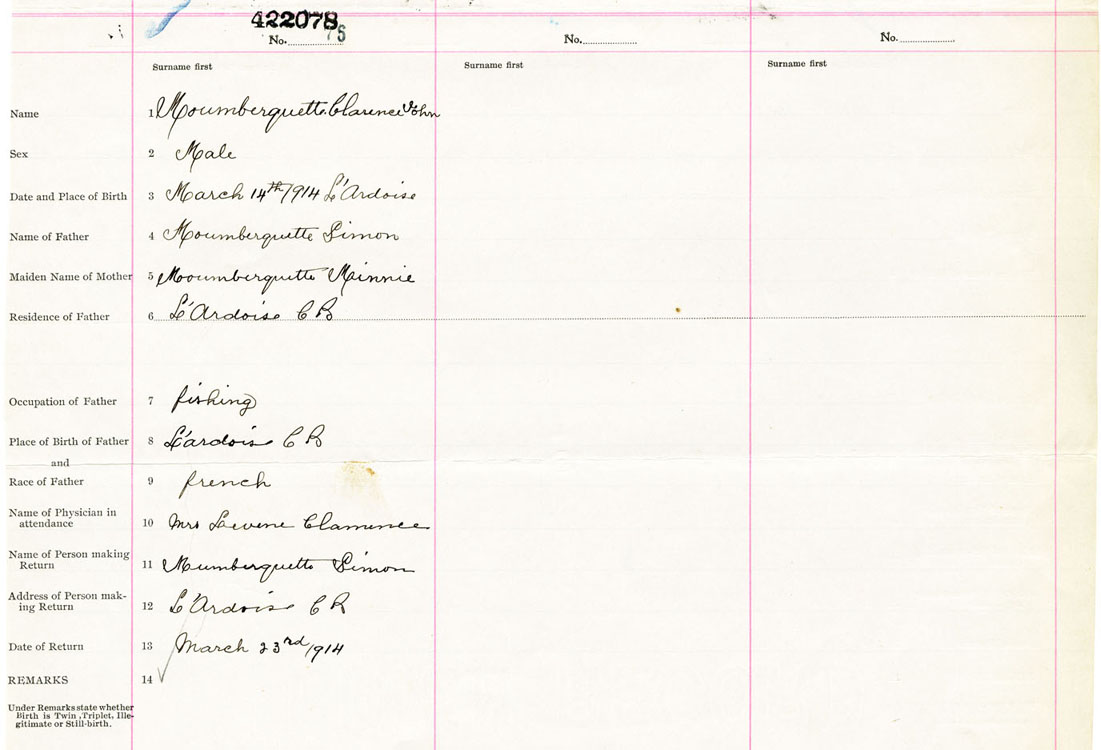 422078
No. 75
No.
No.
Surname first
Surname first
Surname first
Name 1 Moumberquette Clarence John
Sex 2 Male
Date and Place of Birth 3 March 14th 1914 L'Ardoise
Name of Father 4 Moumberquette Simon
Maiden Name of Mother 5 Moumberquette Minnie
Residence of Father 6 L'Ardoise C B
Occupation of Father 7 fishing
Place of Birth of Father 8 L'ardoise C B
and
Race of Father 9 french
Name of Physician in
attendance 10 Mrs Levene Clamence
Name of Person making
Return 11 Mumberquette Simon
Address of Person mak-
ing Return 12 L'Ardoise C B
Date of Return 13 March 23rd 1914
REMARKS 14
Under Remarks state whether
Birth is Twin, Triplet, Ille-
gitimate or Still-birth.